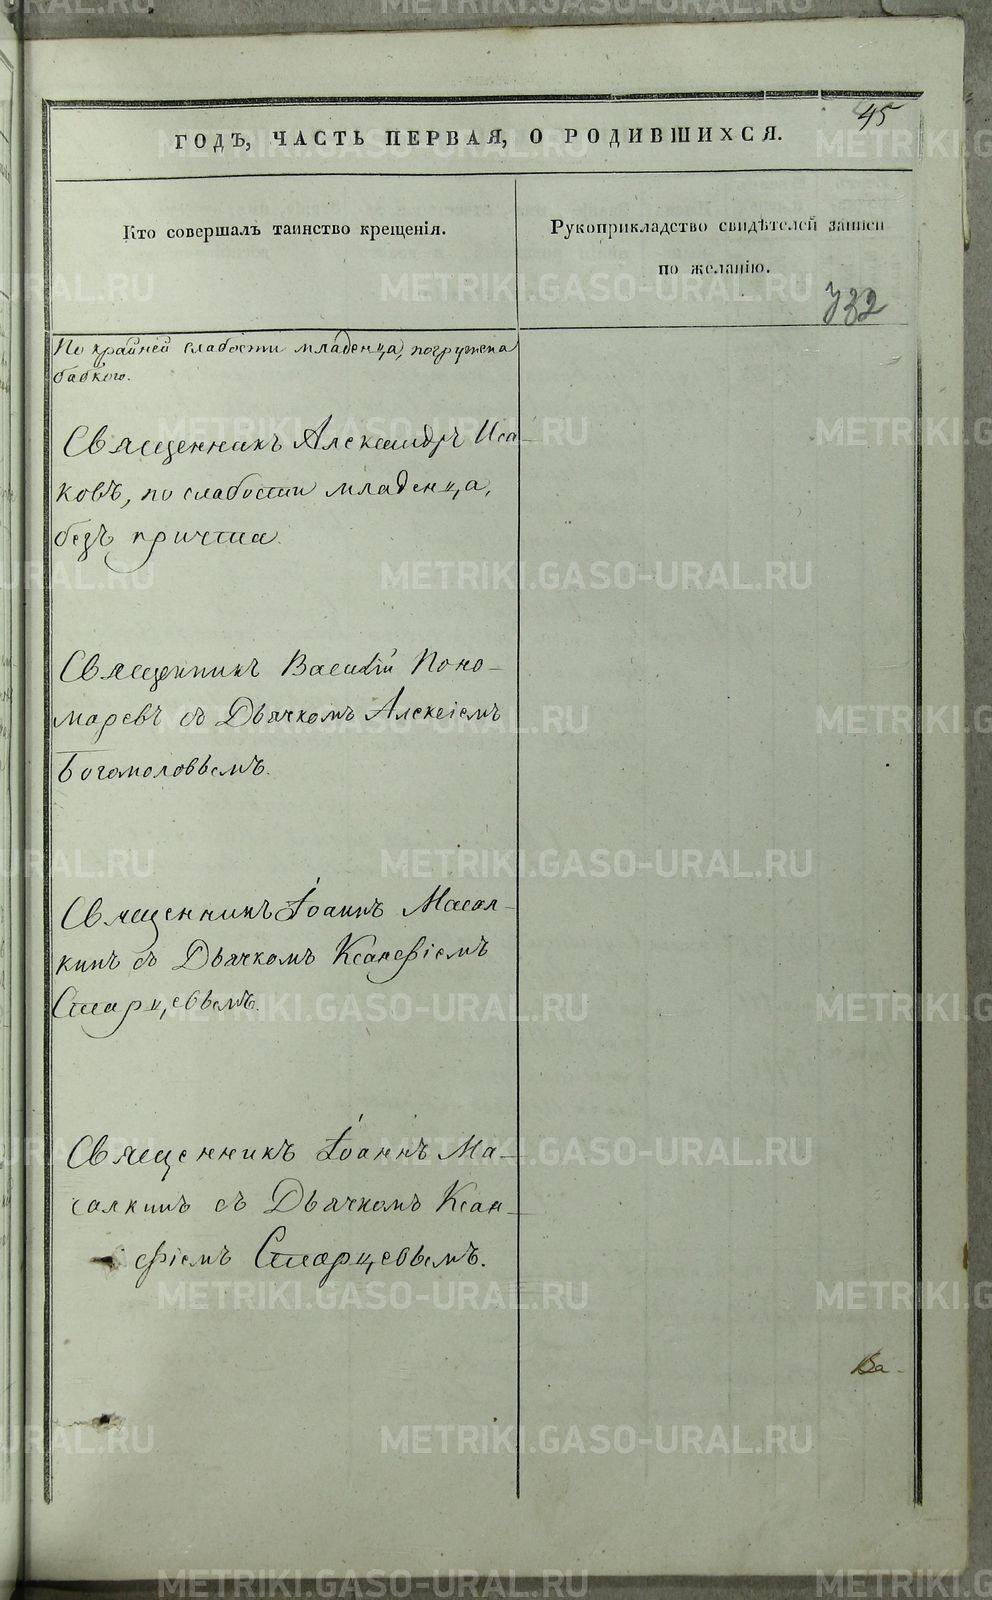 45
ГОДЪ, ЧАСТЬ ПЕРВАЯ, О РОДИВШИХСЯ.
Кто совершалъ таинство крещенія.
Рукоприкладство свидѣтелей записи
по желанію.
732
По крайней слабости младенца, погружена
бабкою.
Священникъ Александръ Иса-
ковъ, по слабости младенца,
безъ причта.
Священникъ Василій Поно-
маревъ съ Дьячкомъ Алексіемъ
Богомоловымъ.
Священникъ Іоаннъ Масал-
кинъ съ Дьячкомъ Ксанѳіемъ
Старцевымъ.
Священникъ Іоаннъ Ма-
салкинъ съ Дьячкомъ Ксан-
ѳіемъ Старцевымъ.
Ва-
METRIKI.GASO-URAL.RU